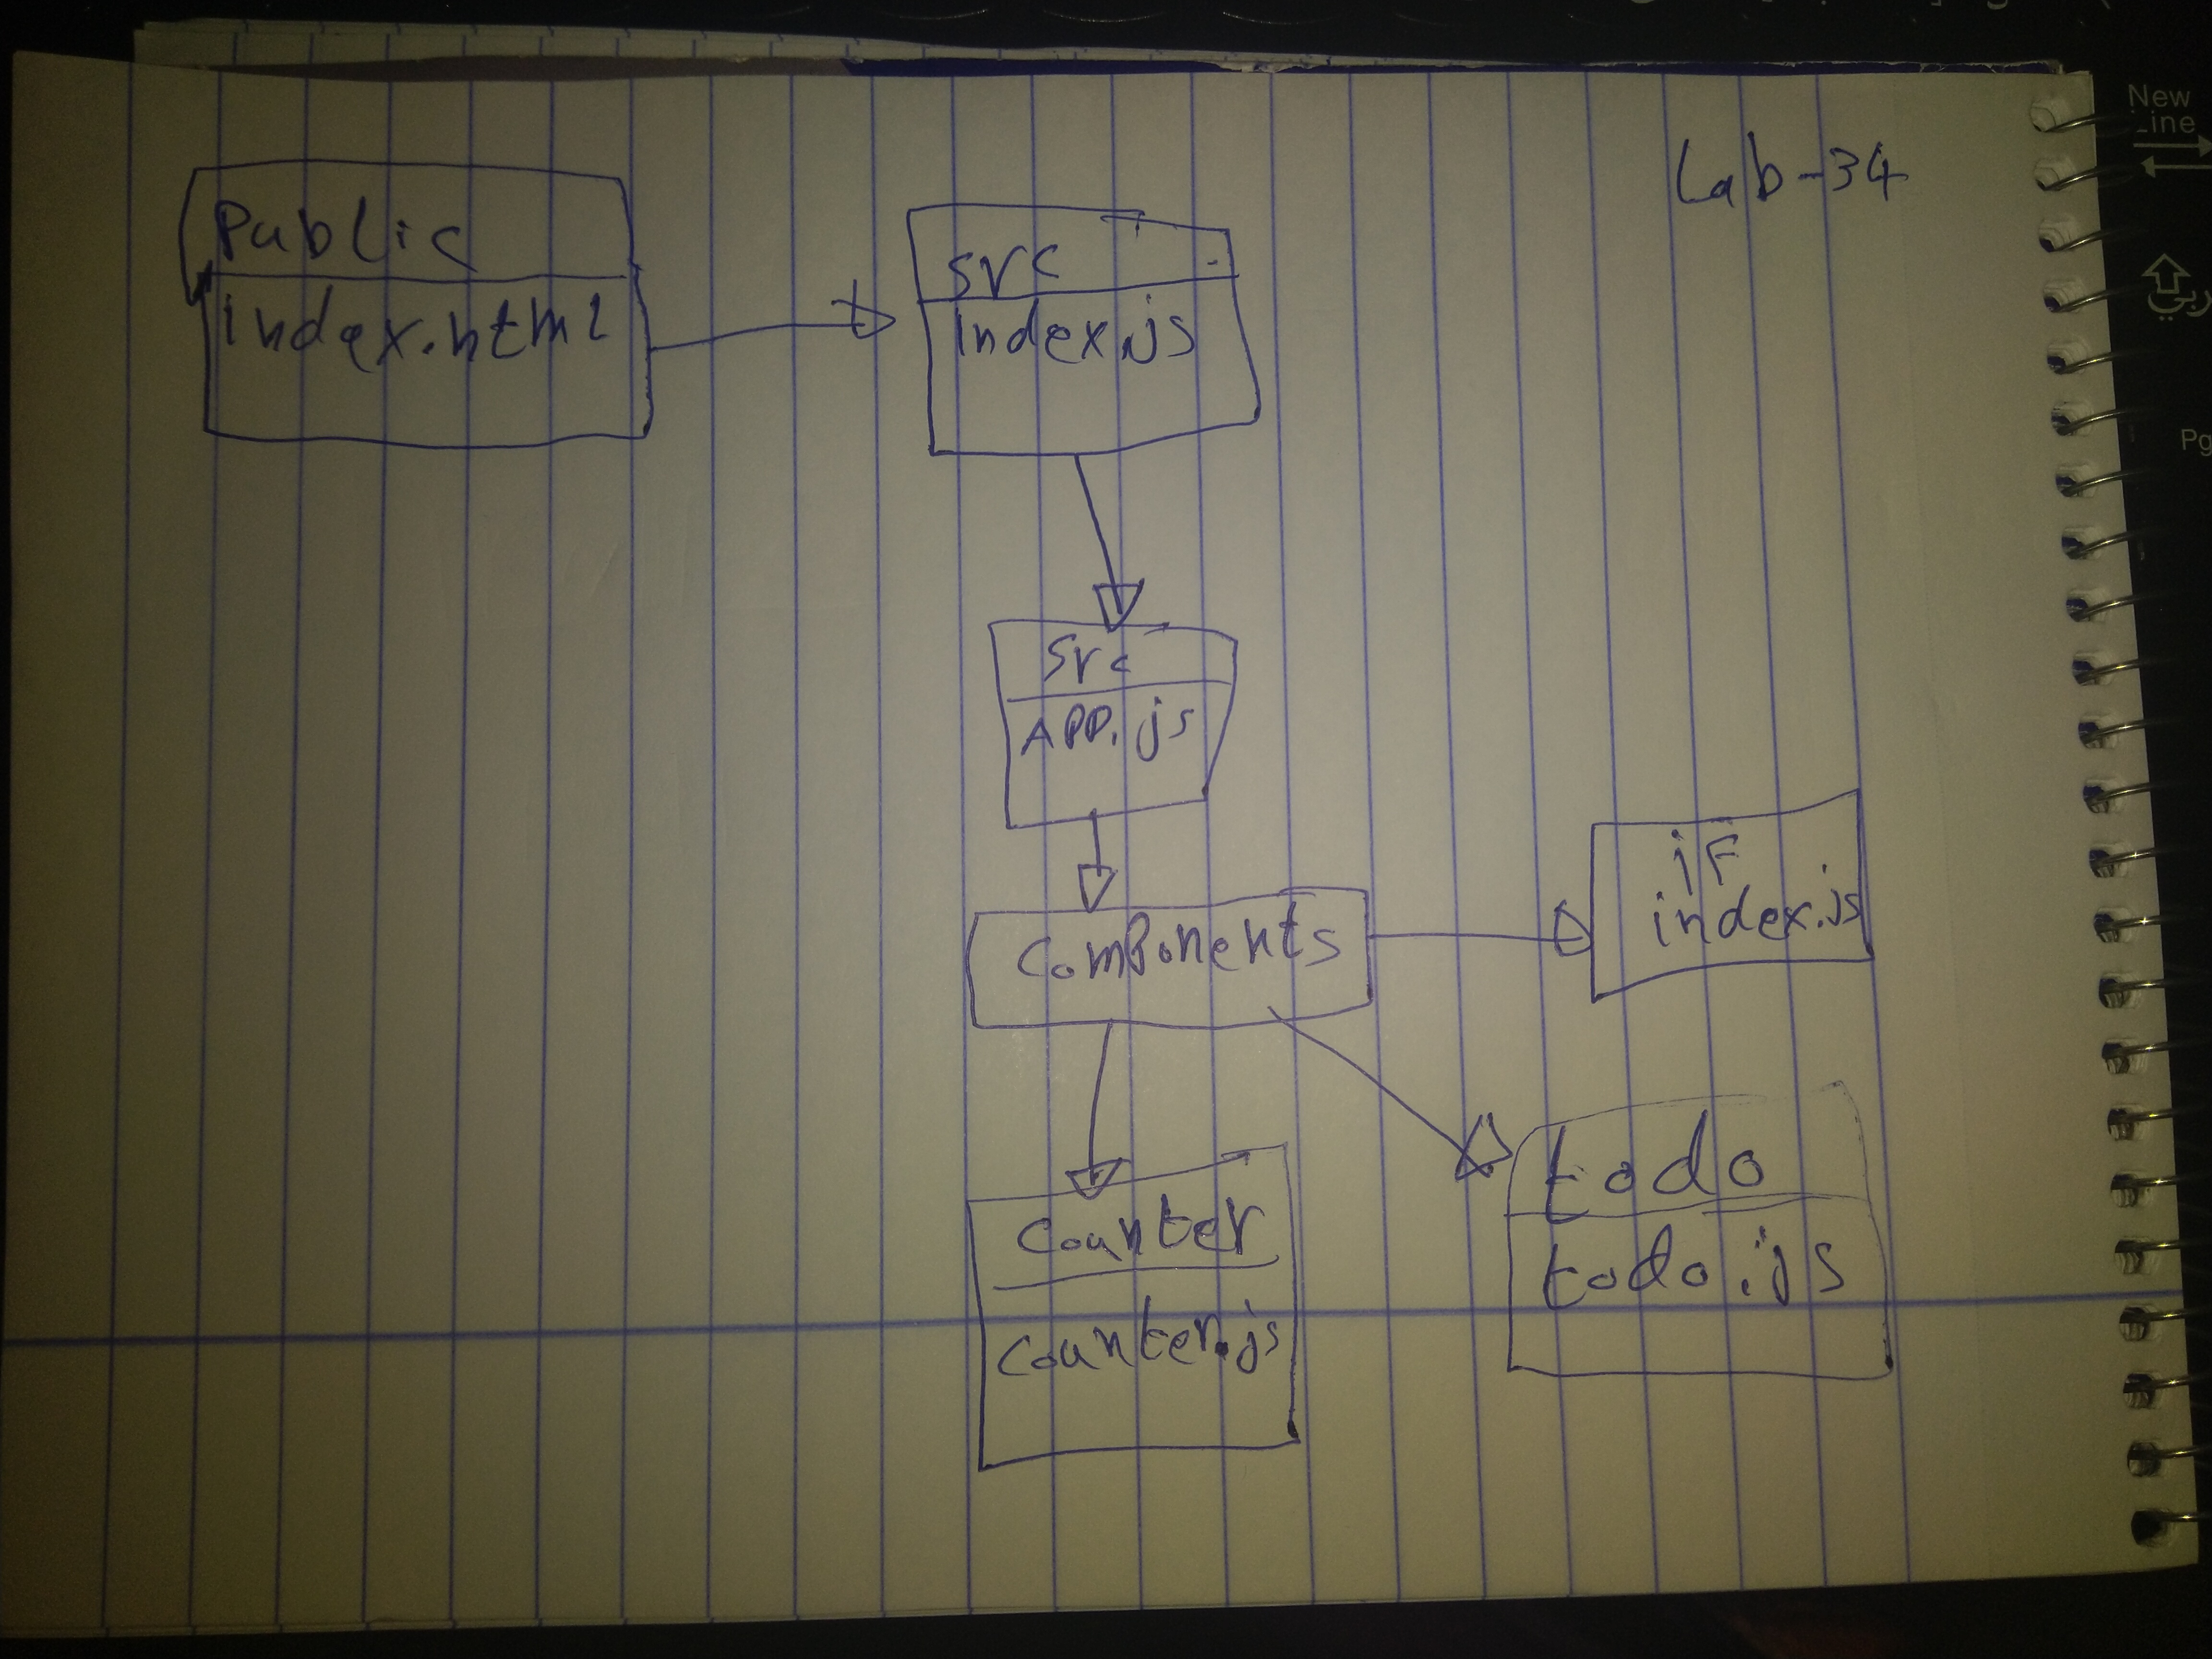 Lab-34
Public
index.html
src
index.js
src
APP.js
components
iF
index.js
todo
todo.js
counter
counter.js
New
Line
ربي
Pg